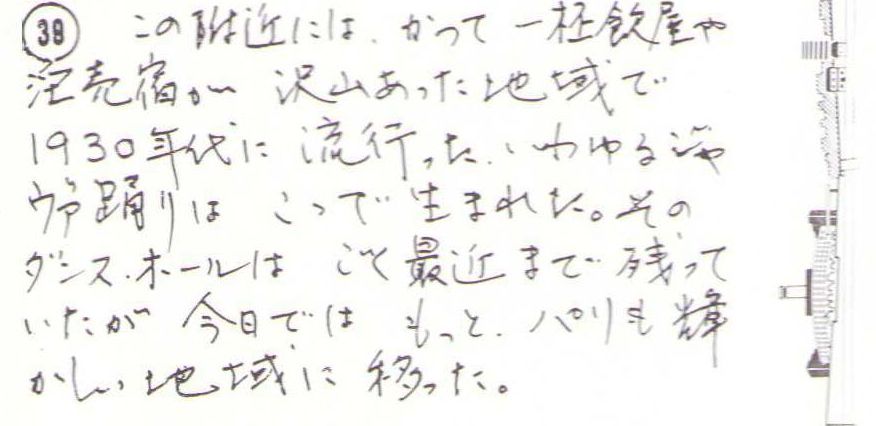 ㊴ この附近には、かつて一杯飲屋や
淫売宿が沢山あった地域で
1930年代に流行った、いわゆるジャ
ヴァ踊りはここで生まれた。その
ダンス・ホールはごく最近まで残って
いたが今日ではもっと、パリも輝
かしい地域に移った。